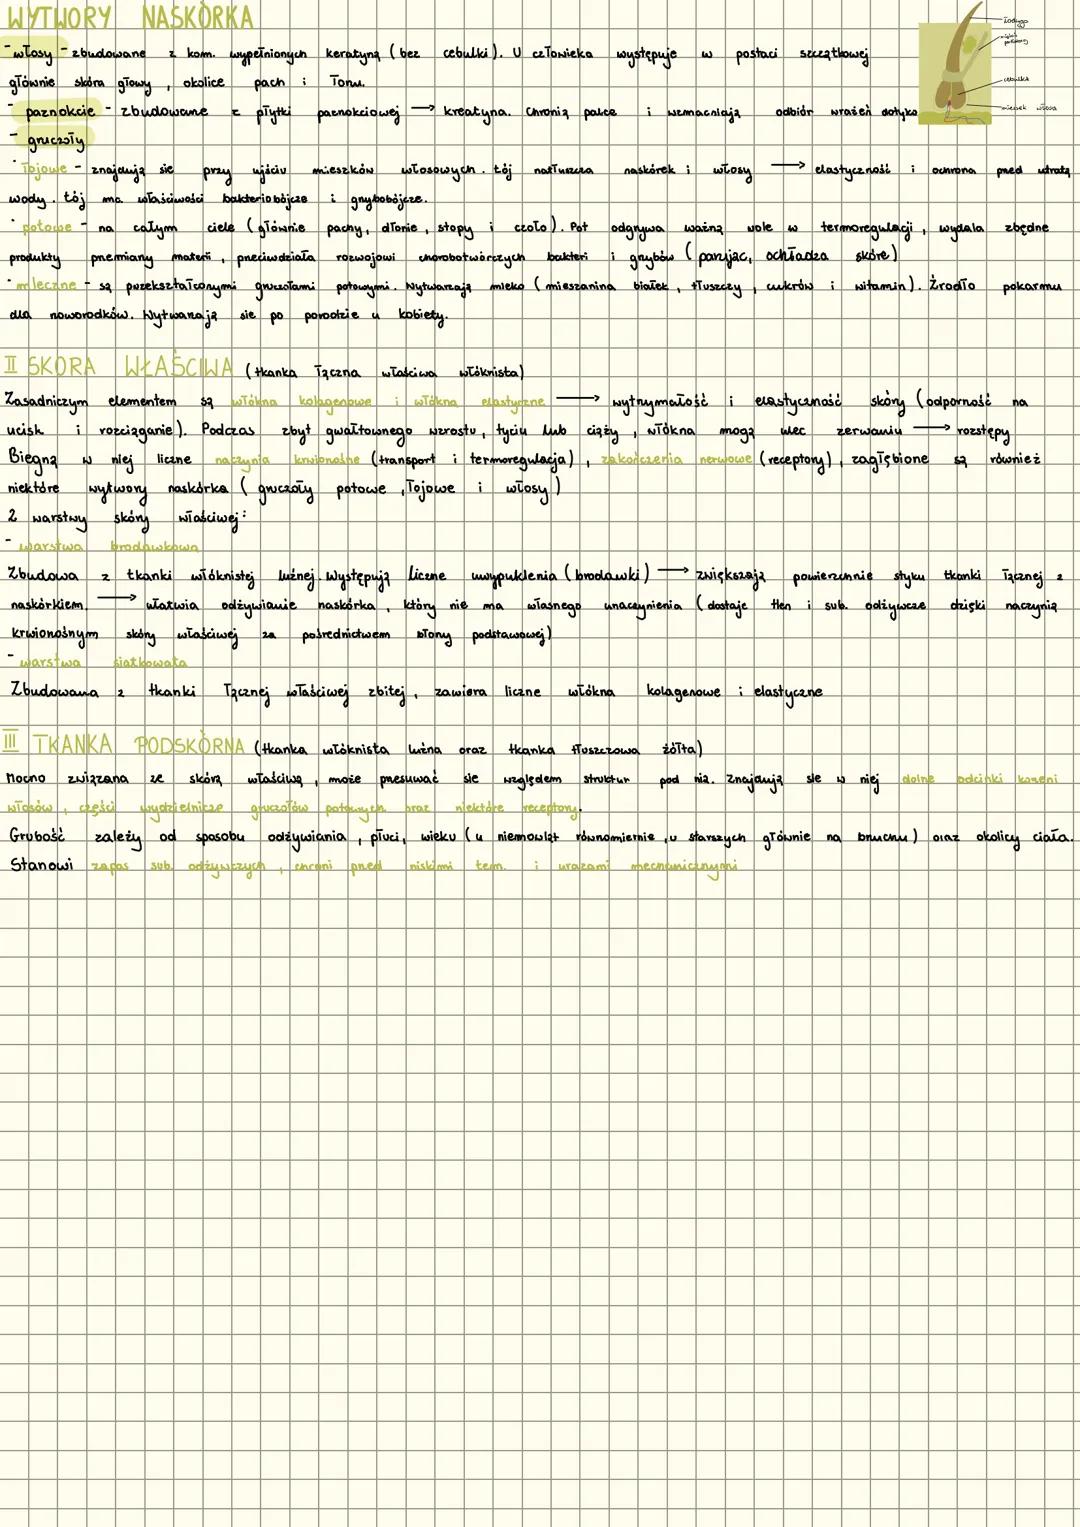 WYTWORY NASKÓRKA
- włosy - zbudowane z kom. wypełnionych keratyną (bez cebulki). U człowieka występuje w postaci szczątkowej
głównie skóra głowy, okolice pach i łonu.
- paznokcie - zbudowane z płytki paznokciowej → kreatyna. Chronią palce i wzmacniają odbiór wrażeń dotyko
- gruczoły
· łojowe - znajdują sie przy ujściu mieszków włosowych. łój natłuszcza naskórek i włosy → elastyczność i ochrona przed utratą
wody. łój ma właściwości bakteriobójcze i grzybobójcze.
· potowe - na całym ciele (głównie pachy, dłonie, stopy i czoło). Pot odgrywa ważną role w termoregulacji, wydala zbędne
produkty przemiany materii, przeciwdziała rozwojowi chorobotwórczych bakterii i grzybów (parując, ochładza skóre)
· mleczne - są przekształconymi gruczołami potowymi. Wytwarzają mleko (mieszanina białek, tłuszczy, cukrów i witamin). Źrodło pokarmu
dla noworodków. Wytwarzają sie po porodzie u kobiety.
łodyga
mięsień
cebulka
mieszek włosa
II SKÓRA WŁAŚCIWA (tkanka łączna właściwa włóknista)
Zasadniczym elementem są włókna kolagenowe i włókna elastyczne → wytrzymałość i elastyczność skóry (odporność na
ucisk i rozciąganie). Podczas zbyt gwałtownego wzrostu, tyciu lub ciąży, włókna mogą ulec zerwaniu → rozstępy
Biegną w niej liczne naczynia krwionośne (transport i termoregulacja), zakończenia nerwowe (receptory), zagłębione są również
niektóre wytwory naskórka (gruczoły potowe, łojowe i włosy)
2 warstwy skóry właściwej:
- warstwa brodawkowa
Zbudowa z tkanki włóknistej luźnej. Występują liczne uwypuklenia (brodawki) → zwiększają powierzchnie styku tkanki łącznej z
naskórkiem. → ułatwia odżywianie naskórka, który nie ma własnego unaczynienia (dostaje tlen i sub. odżywcze dzięki naczynią
krwionośnym skóry właściwej za pośrednictwem błony podstawowej)
- warstwa siatkowata
Zbudowana z tkanki łącznej właściwej zbitej, zawiera liczne włókna kolagenowe i elastyczne
III TKANKA PODSKÓRNA (tkanka włóknista luźna oraz tkanka tłuszczowa żółta)
Mocno związana ze skórą właściwą, może przesuwać sie względem struktur pod nią. Znajdują sie w niej dolne odcinki korzeni
włosów, części wydzielnicze gruczołów potowych oraz niektóre receptory.
Grubość zależy od sposobu odżywiania, płuci, wieku (u niemowląt równomiernie, u starszych głównie na brzuchu) oraz okolicy ciała.
Stanowi zapas sub. odżywczych, chroni przed niskimi tem. i urazami mechanicznymi